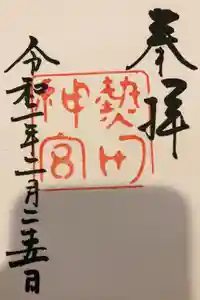 奉拝
熱田神宮
令和二年二月二十五日